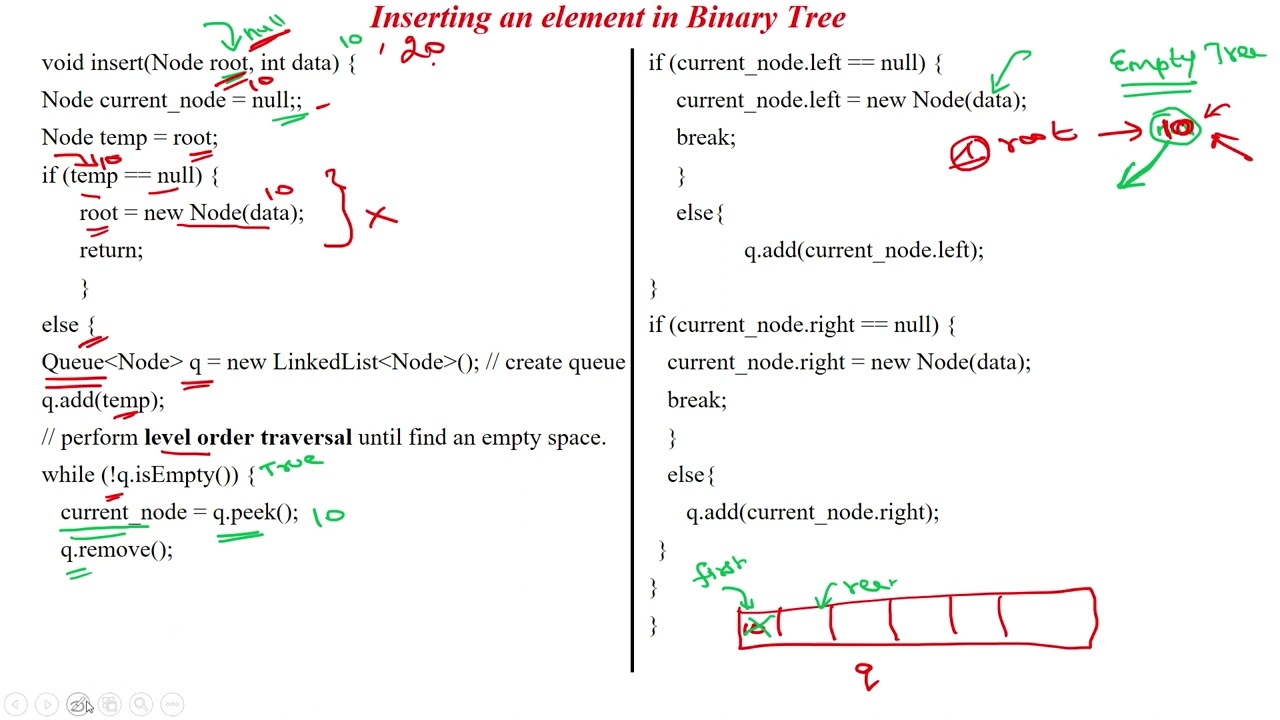 Inserting an element in Binary Tree
null
10 , 20
void insert(Node root, int data) {
10
Node current_node = null;;
Node temp = root;
10
if (temp == null) {
10
root = new Node(data);
return;
}
else {
Queue<Node> q = new LinkedList<Node>(); // create queue
q.add(temp);
// perform level order traversal until find an empty space.
while (!q.isEmpty()) { True
current_node = q.peek(); 10
q.remove();
if (current_node.left == null) {
current_node.left = new Node(data);
break;
}
else{
q.add(current_node.left);
}
if (current_node.right == null) {
current_node.right = new Node(data);
break;
}
else{
q.add(current_node.right);
}
}
}
Empty Tree
1 root 10
first
rear
10
q